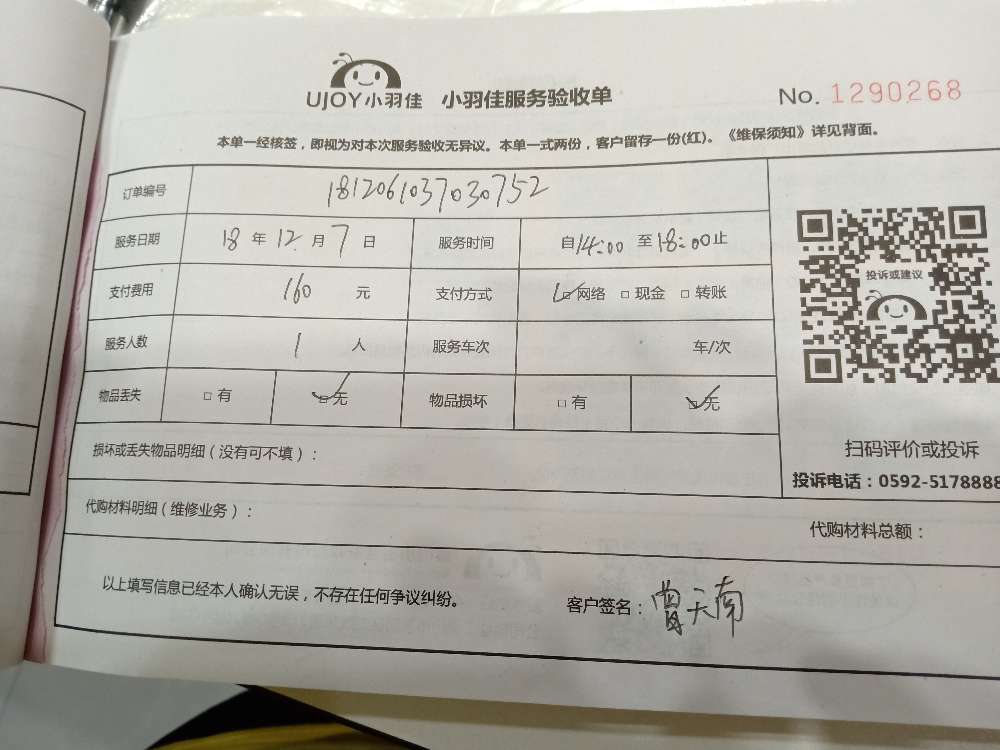 UJOY小羽佳 小羽佳服务验收单 No. 1290268
本单一经核签，即视为对本次服务验收无异议。本单一式两份，客户留存一份(红)。《维保须知》详见背面。
订单编号 1812061037030752
服务日期 18 年 12 月 7 日 服务时间 自14:00 至18:00止
支付费用 160 元 支付方式 ☑网络 □ 现金 □ 转账
投诉或建议
服务人数 1 人 服务车次 车/次
物品丢失 □ 有 ☑无 物品损坏 □ 有 ☑无
损坏或丢失物品明细（没有可不填）：
扫码评价或投诉
投诉电话：0592-5178888
代购材料明细（维修业务）：
代购材料总额：
以上填写信息已经本人确认无误，不存在任何争议纠纷。 客户签名：曾天南